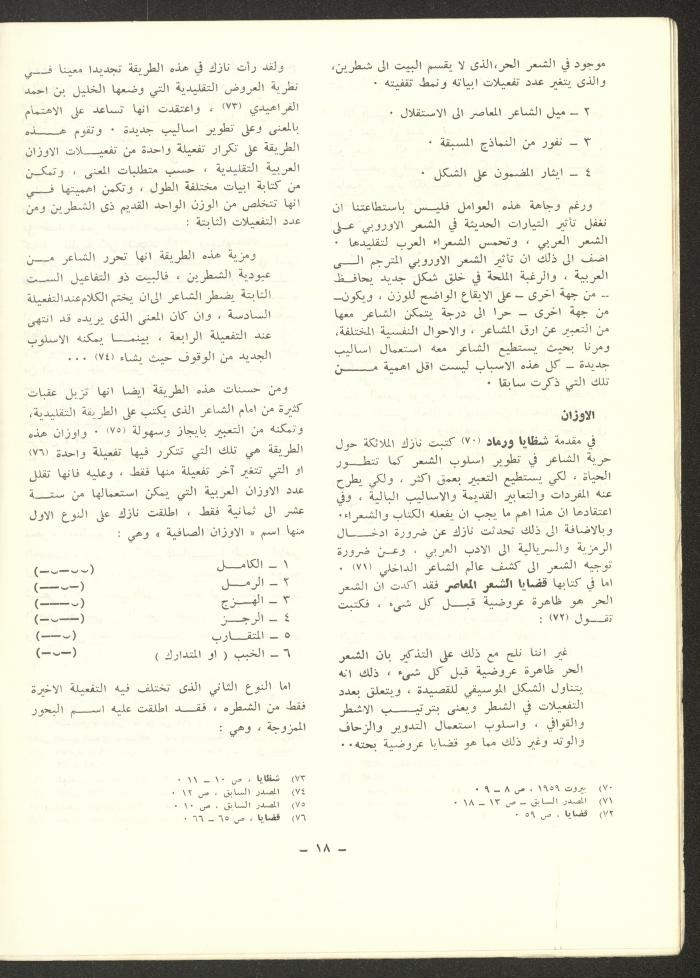 موجود في الشعر الحر، الذى لا يقسم البيت الى شطرين،
والذى يتغير عدد تفعيلات ابياته ونمط تقفيته ٠
٢ ــ ميل الشاعر المعاصر الى الاستقلال ٠
٣ ــ نفور من النماذج المسبقة ٠
٤ ــ ايثار المضمون على الشكل ٠
ورغم وجاهة هذه العوامل فليس باستطاعتنا ان
نغفل تأثير التيارات الحديثة في الشعر الاوروبي على
الشعر العربي ، وتحمس الشعراء العرب لتقليدها ٠
اضف الى ذلك ان تأثير الشعر الاوروبي المترجم الى
العربية ، والرغبة الملحة في خلق شكل جديد يحافظ
ــ من جهة اخرى ــ على الايقاع الواضح للوزن ، ويكون ــ
من جهة اخرى ــ حرا الى درجة يتمكن الشاعر معها
من التعبير عن ارق المشاعر ، والاحوال النفسية المختلفة،
ومرنا بحيث يستطيع الشاعر معه استعمال اساليب
جديدة ــ كل هذه الاسباب ليست اقل اهمية من
تلك التي ذكرت سابقا ٠
الاوزان
في مقدمة شظايا ورماد (٧٠) كتبت نازك الملائكة حول
حرية الشاعر في تطوير اسلوب الشعر كما تتطور
الحياة ، لكي يستطيع التعبير بعمق اكثر ، ولكي يطرح
عنه المفردات والتعابير القديمة والاساليب البالية ، وفي
اعتقادها ان هذا اهم ما يجب ان يفعله الكتاب والشعراء٠
وبالاضافة الى ذلك تحدثت نازك عن ضرورة ادخال
الرمزية والسريالية الى الادب العربي ، وعن ضرورة
توجيه الشعر الى كشف عالم الشاعر الداخلي (٧١) ٠
اما في كتابها قضايا الشعر المعاصر فقد اكدت ان الشعر
الحر هو ظاهرة عروضية قبل كل شىء ، فكتبت
تقول (٧٢) :
غير اننا نلح مع ذلك على التذكير بان الشعر
الحر ظاهرة عروضية قبل كل شىء ، ذلك انه
يتناول الشكل الموسيقي للقصيدة ، ويتعلق بعدد
التفعيلات في الشطر ويعنى بترتيب الاشطر
والقوافي ، واسلوب استعمال التدوير والزحاف
والوتد وغير ذلك مما هو قضايا عروضية بحته٠٠
(٧٠ بيروت ١٩٥٩ ، ص ٨ ــ ٩ ٠
(٧١ المصدر السابق ــ ص ١٣ ــ ١٨ ٠
(٧٢ قضايا ، ص ٥٩ ٠
ولقد رأت نازك في هذه الطريقة تجديدا معينا في
نظرية العروض التقليدية التي وضعها الخليل بن احمد
الفراهيدي (٧٣) ، واعتقدت انها تساعد على الاهتمام
بالمعنى وعلى تطوير اساليب جديدة ٠ وتقوم هذه
الطريقة على تكرار تفعيلة واحدة من تفعيلات الاوزان
العربية التقليدية ، حسب متطلبات المعنى ، وتمكن
من كتابة ابيات مختلفة الطول ، وتكمن اهميتها في
انها تتخلص من الوزن الواحد القديم ذى الشطرين ومن
عدد التفعيلات الثابتة :
ومزية هذه الطريقة انها تحرر الشاعر من
عبودية الشطرين ، فالبيت ذو التفاعيل الست
الثابتة يضطر الشاعر الى ان يختم الكلام عند التفعيلة
السادسة ، وان كان المعنى الذى يريده قد انتهى
عند التفعيلة الرابعة ، بينما يمكنه الاسلوب
الجديد من الوقوف حيث يشاء (٧٤) ٠٠٠
ومن حسنات هذه الطريقة ايضا انها تزيل عقبات
كثيرة من امام الشاعر الذى يكتب على الطريقة التقليدية،
وتمكنه من التعبير بايجاز وسهولة (٧٥) ٠ واوزان هذه
الطريقة هي تلك التي تتكرر فيها تفعيلة واحدة (٧٦)
او التي تتغير آخر تفعيلة منها فقط ، وعليه فانها تقلل
عدد الاوزان العربية التي يمكن استعمالها من ستة
عشر الى ثمانية فقط ، اطلقت نازك على النوع الاول
منها اسم « الاوزان الصافية » وهي :
١ ــ الكامل (—ᴗ—ᴗᴗ)
٢ ــ الرمل (——ᴗ—)
٣ ــ الهزج (———ᴗ)
٤ ــ الرجز (—ᴗ——)
٥ ــ المتقارب (——ᴗ)
٦ ــ الخبب ( او المتدارك ) (—ᴗ—)
اما النوع الثاني الذى تختلف فيه التفعيلة الاخيرة
فقط من الشطره ، فقد اطلقت عليه اسم البحور
الممزوجة ، وهي :
(٧٣ شظايا ، ص ١٠ ــ ١١ ٠
(٧٤ المصدر السابق ، ص ١٢ ٠
(٧٥ المصدر السابق ، ص ١٠ ٠
(٧٦ قضايا ، ص ٦٥ ــ ٦٦ ٠
ــ ١٨ ــ